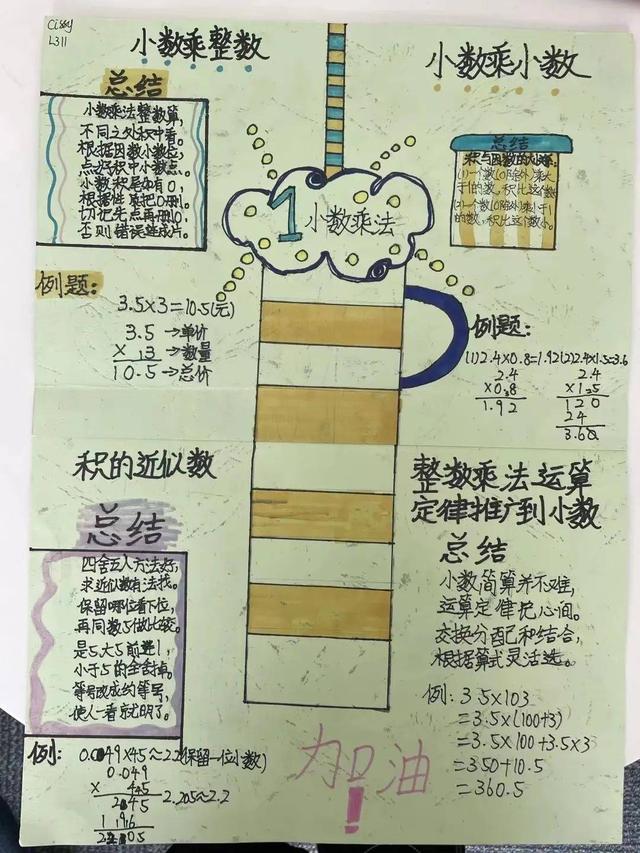 Cissy
L311
小数乘整数
总结
小数乘法整数算,
不同之处积中看。
根据因数小数位,
点好积中小数点。
小数积尾如有0,
根据性质把0删。
切记先点再删0,
否则错误连成片。
例题:
3.5×3=10.5(元)
3.5→单价
× 3→数量
10.5→总价
1 小数乘法
小数乘小数
总结
积与因数的大小关系:
(1)一个数(0除外)乘大
于1的数,积比这个数
(2)一个数(0除外)乘小于1
的数,积比这个数小。
例题:
(1)2.4×0.8=1.92
2.4
×0.8
1.92
(2)2.4×1.5=3.6
2.4
×1.5
120
24
3.60
积的近似数
总结
四舍五入方法好,
求近似数有法找。
保留哪位看下位,
再同数5做比较。
是5大5前进1,
小于5的全舍掉。
等号改成约等号,
使人一看就明了。
例:
0.049×45≈2.2(保留一位小数)
0.049
× 45
245
196
2.205
2.205≈2.2
整数乘法运算
定律推广到小数
总结
小数简算并不难,
运算定律记心间。
交换分配和结合,
根据算式灵活选。
例:3.5×103
=3.5×(100+3)
=3.5×100+3.5×3
=350+10.5
=360.5
加油!